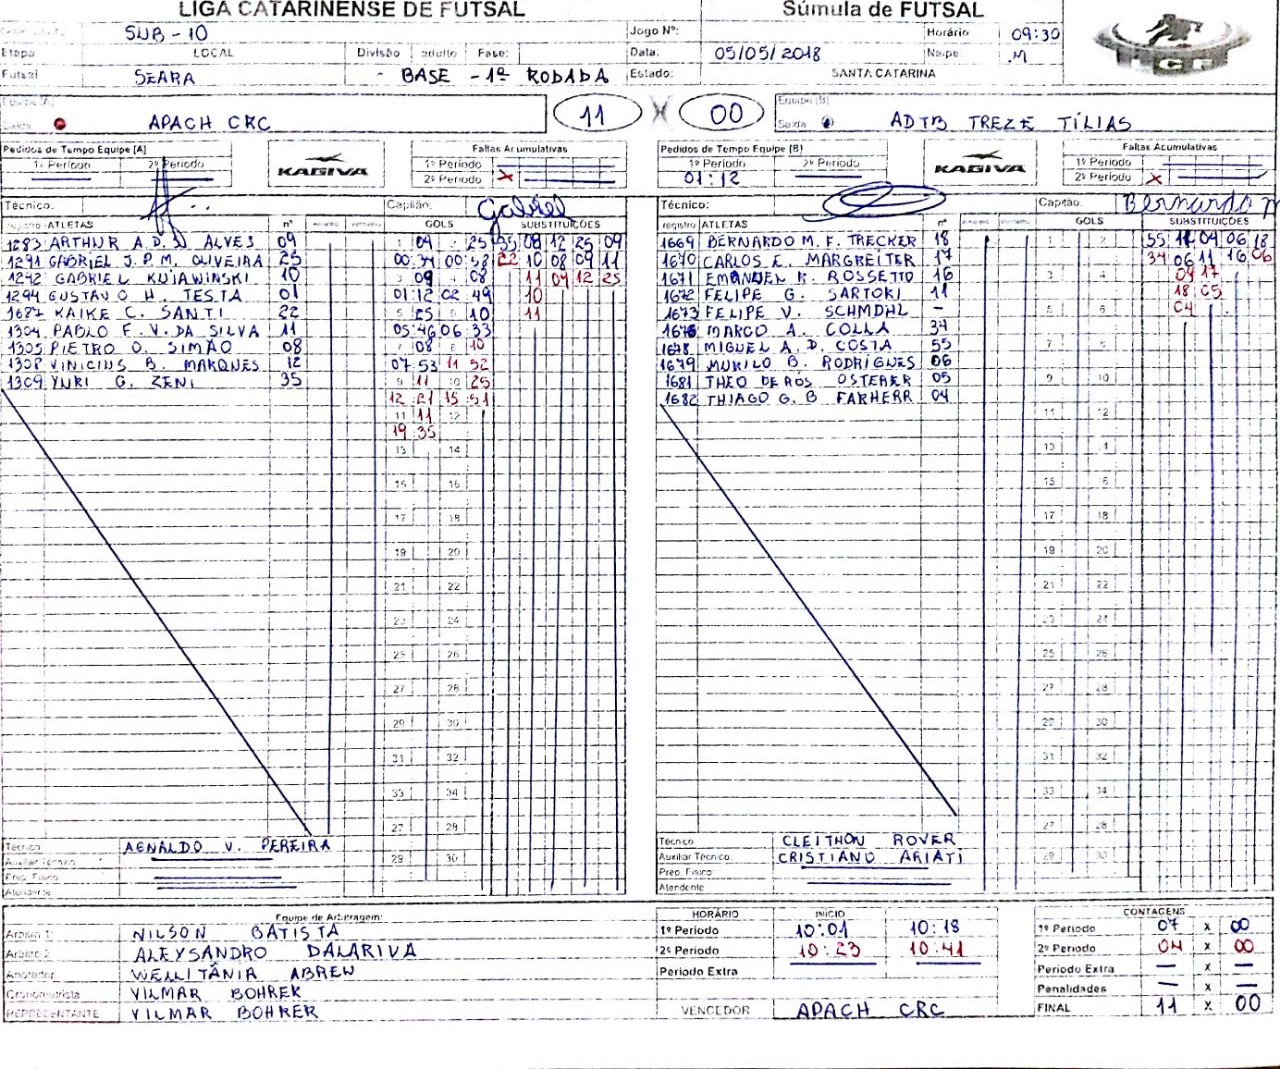 LIGA CATARINENSE DE FUTSAL Súmula de FUTSAL
SUB-10 Jogo Nº: Horário 09:30
Etapa LOCAL Divisão adulto Fase: Data: 05/05/2018 Naipe: M
Futsal SEARA - BASE - 1ª RODADA Estado: SANTA CATARINA
LCF
APACH CRC 11 X 00 Equipe (B)
Saída ADTB TREZE TÍLIAS
Pedidos de Tempo Equipe (A) Faltas Acumulativas Pedidos de Tempo Equipe (B) Faltas Acumulativas
1º Periodo 2º Periodo KAGIVA 1º Periodo 1º Periodo 2º Periodo KAGIVA 1º Periodo
2º Periodo X 01:12 2º Periodo X
Técnico: Capitão: Gabriel Técnico: Capitão: Bernardo
ATLETAS nº GOLS SUBSTITUIÇÕES registro ATLETAS nº GOLS SUBSTITUIÇÕES
1283 ARTHUR A. D. S. ALVES 09 1 09 2 25 35 08 12 25 09 1669 BERNARDO M. F. TRECKER 18 1 2 55 11 04 06 18
1291 GABRIEL J. P. M. OLIVEIRA 25 00:34 00:58 22 10 08 09 11 1670 CARLOS E. MARGREITER 17 34 06 11 16 06
1292 GABRIEL KUJAWINSKI 10 3 09 08 11 09 12 25 1671 EMANUEL R. ROSSETTO 16 3 4 09 17
1294 GUSTAVO H. TESTA 01 01:12 02 49 10 1672 FELIPE G. SARTORI 11 18 05
1687 KAIKE C. SANTI 22 5 25 10 11 1673 FELIPE V. SCHMDHL - 5 6 04
1304 PABLO F. V. DA SILVA 11 05:46 06:33 1676 MARCO A. COLLA 34
1305 PIETRO O. SIMÃO 08 08 10 1678 MIGUEL A. D. COSTA 55 7
1308 VINICIUS B. MARQUES 12 07:53 11 52 1679 MURILO B. RODRIGUES 06
1309 YURI G. ZENI 35 9 11 10 25 1681 THEO DE ROS OSTERER 05 9 10
12 21 15:51 1682 THIAGO G. B FARHERR 04
11 11 12 11 12
19 35
13 14 13
15 16 15
17 18 17 18
19 20 19 20
21 22 21 22
24
25 26 25 26
27 28 27 28
29 30 29 30
31 32 31 32
33 34 33 34
27 28 27 28
Técnico AGNALDO V. PEREIRA Técnico CLEITHON ROVER
Auxiliar Técnico 29 30 Auxiliar Tecnico. CRISTIANO ARIATI 29 30
Prep. Físico Prep. Físico
Atendente Atendente
Equipe de Arbitragem: HORÁRIO INÍCIO CONTAGENS
Arbitro 1: NILSON BATISTA 1º Periodo 10:01 10:18 1º Periodo 07 x 00
Arbitro 2 ALEYSANDRO DALARIVA 2º Periodo 10:23 10:41 2º Periodo 04 x 00
Anotador WELLITÂNIA ABREU Periodo Extra Periodo Extra — x —
Cronometrista VILMAR BOHRER Penalidades — x —
REPRESENTANTE VILMAR BOHRER VENCEDOR APACH CRC FINAL 11 x 00